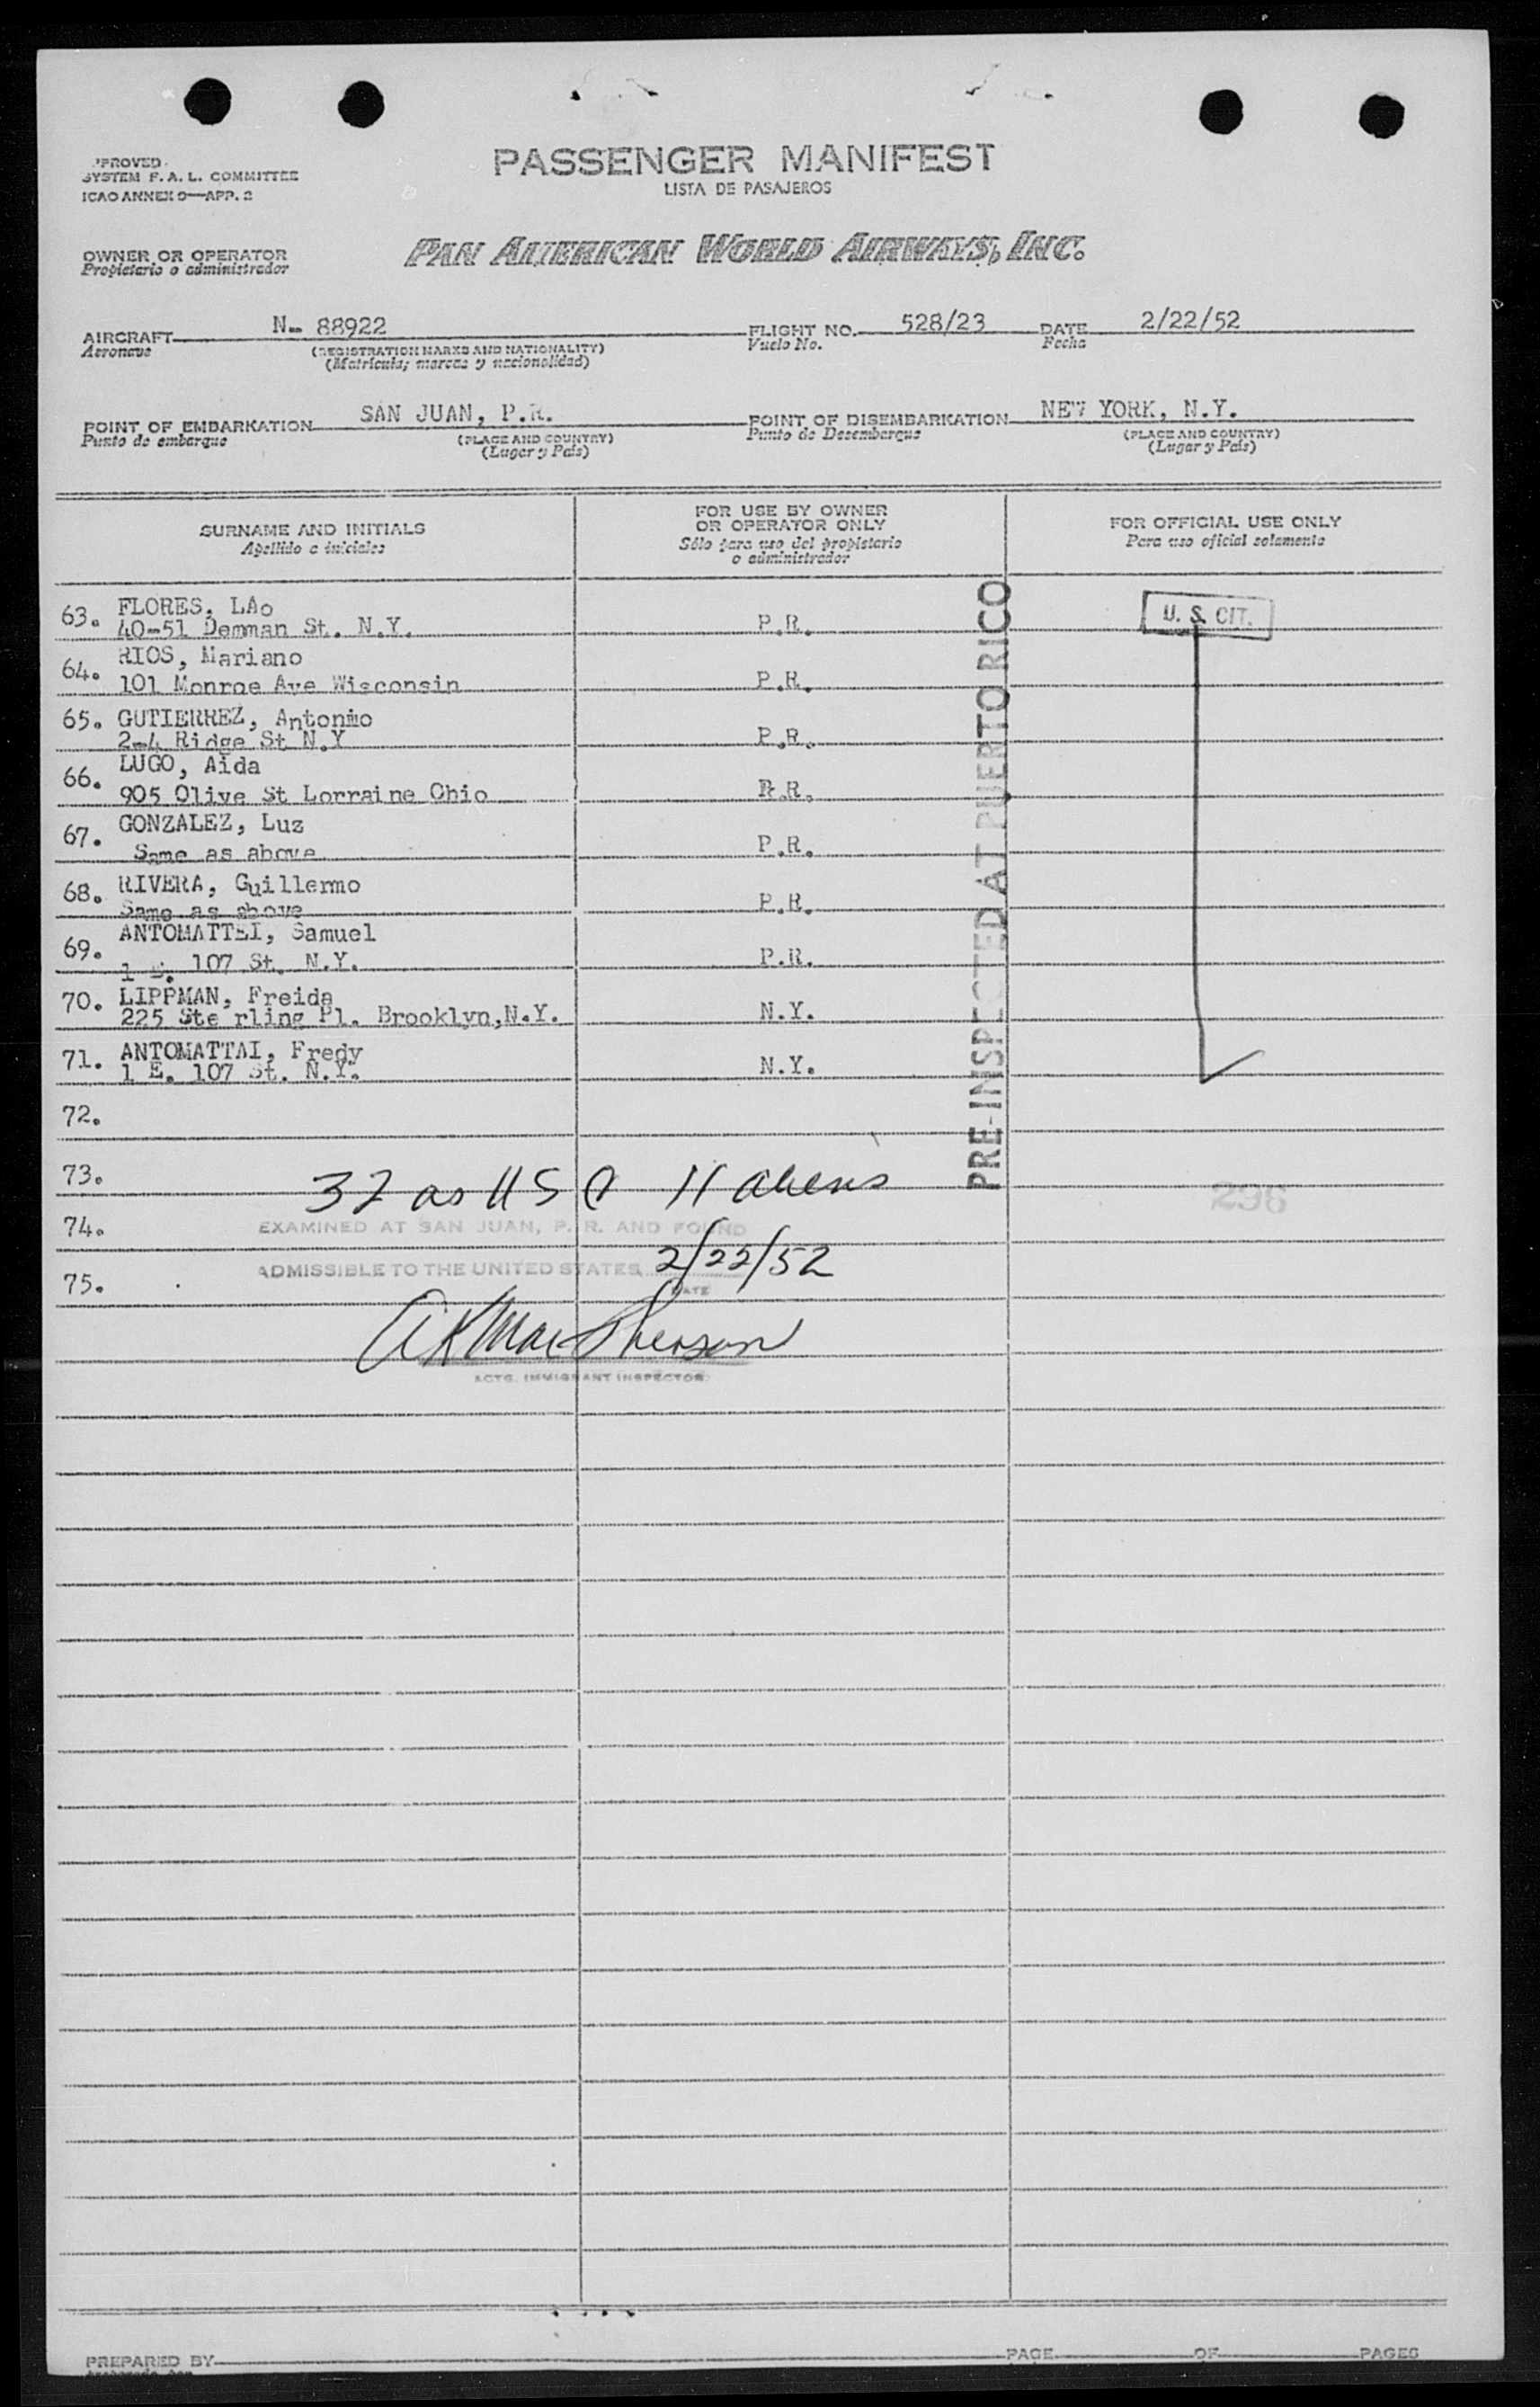 PROVED
SYSTEM F. A. L. COMMITTEE
ICAO ANNEX 9—APP. 2
PASSENGER MANIFEST
LISTA DE PASAJEROS
OWNER OR OPERATOR
Propietario o administrador
PAN AMERICAN WORLD AIRWAYS, INC.
AIRCRAFT N-- 88922 FLIGHT NO. 528/23 DATE 2/22/52
Aeronave (REGISTRATION MARKS AND NATIONALITY) Vuelo No. Fecha
(Matricula; marcas y nacionalidad)
POINT OF EMBARKATION SAN JUAN, P.R. POINT OF DISEMBARKATION NEW YORK, N.Y.
Punto de embarque (PLACE AND COUNTRY) Punto de Desembarque (PLACE AND COUNTRY)
(Lugar y País) (Lugar y País)
SURNAME AND INITIALS
Apellido e iniciales
FOR USE BY OWNER
OR OPERATOR ONLY
Sólo para uso del propietario
o administrador
FOR OFFICIAL USE ONLY
Para uso oficial solamente
63. FLORES, LAo
40-51 Denman St. N.Y. P.R. U. S. CIT.
64. RIOS, Mariano
101 Monroe Ave Wisconsin P.R.
65. GUTIERREZ, Antonio
2-4 Ridge St N.Y P.R.
66. LUGO, Aida
905 Olive St Lorraine Ohio P.R.
67. GONZALEZ, Luz
Same as above P.R.
68. RIVERA, Guillermo
Same as above P.R.
69. ANTOMATTEI, Samuel
1 E. 107 St. N.Y. P.R.
70. LIPPMAN, Freida
225 Ste rling Pl. Brooklyn,N.Y. N.Y.
71. ANTOMATTAI, Fredy
1 E. 107 St. N.Y. N.Y.
PRE-INSPECTED AT PUERTO RICO
72.
73. 37 as US C 11 aliens 296
74. EXAMINED AT SAN JUAN, P. R. AND FOUND
75. ADMISSIBLE TO THE UNITED STATES 2/22/52
DATE
A K MacPherson
ACTG. IMMIGRANT INSPECTOR
PREPARED BY PAGE OF PAGES